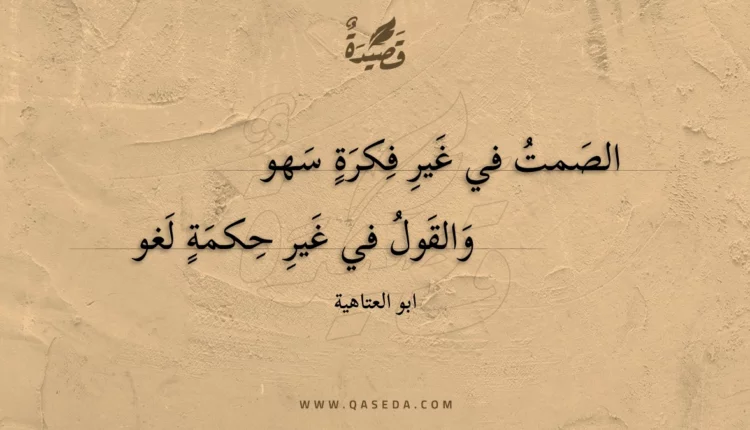 قَصيدَةٌ
الصَمتُ في غَيرِ فِكرَةٍ سَهو
وَالقَولُ في غَيرِ حِكمَةٍ لَغو
ابو العتاهية
WWW.QASEDA.COM